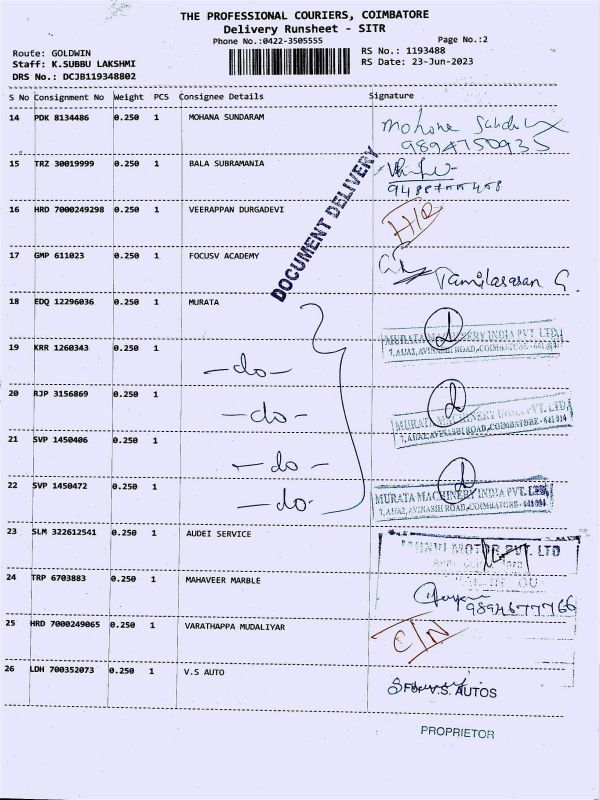 THE PROFESSIONAL COURIERS, COIMBATORE
Delivery Runsheet - SITR
Phone No.:0422-3505555 Page No.:2
Route: GOLDWIN RS No.: 1193488
Staff: K.SUBBU LAKSHMI RS Date: 23-Jun-2023
DRS No.: DCJB119348802
S No Consignment No Weight PCS Consignee Details Signature
14 PDK 8134486 0.250 1 MOHANA SUNDARAM Mohana
15 TRZ 30019999 0.250 1 BALA SUBRAMANIA
DOCUMENT DELIVERY
16 HRD 7000249298 0.250 1 VEERAPPAN DURGADEVI
17 GMP 611023 0.250 1 FOCUSV ACADEMY Tamilarasan G.
18 EDQ 12296036 0.250 1 MURATA
MURATA MACHINERY INDIA PVT. LTD.
7, AVINASHI ROAD, COIMBATORE - 641 014
19 KRR 1260343 0.250 1 -do-
20 RJP 3156869 0.250 1 -do-
MURATA MACHINERY INDIA PVT. LTD.
7, AVINASHI ROAD, COIMBATORE - 641 014
21 SVP 1450406 0.250 1 -do-
22 SVP 1450472 0.250 1 -do-
MURATA MACHINERY INDIA PVT. LTD.
7, AVINASHI ROAD, COIMBATORE - 641 014
23 SLM 322612541 0.250 1 AUDEI SERVICE
MOTOR PVT. LTD
24 TRP 6703883 0.250 1 MAHAVEER MARBLE
9894677766
25 HRD 7000249065 0.250 1 VARATHAPPA MUDALIYAR C/N
26 LDH 700352073 0.250 1 V.S AUTO
For V.S. AUTOS
PROPRIETOR